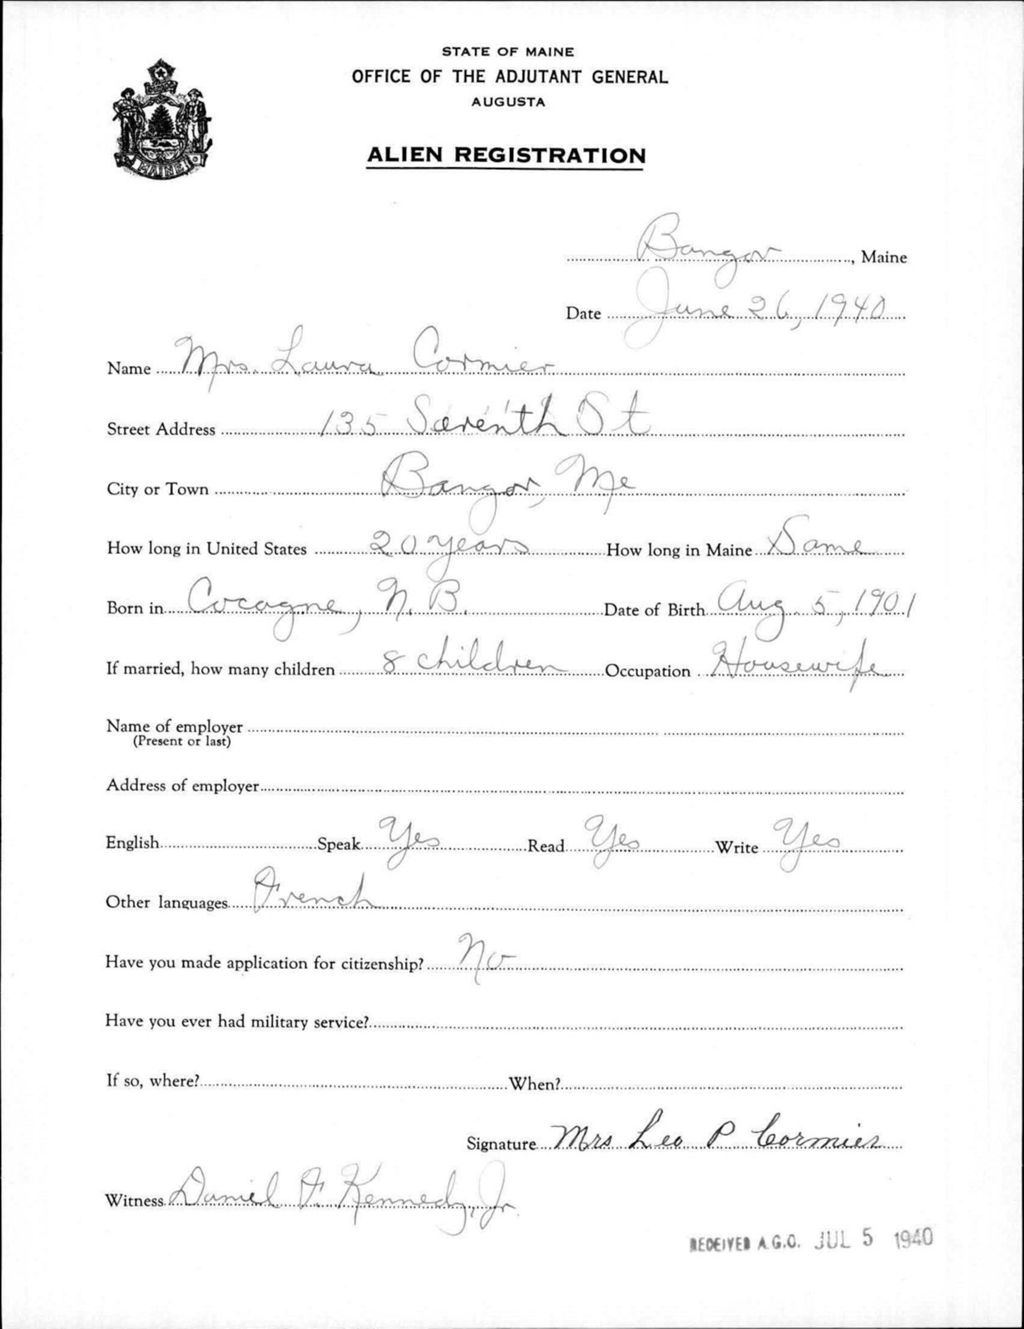 STATE OF MAINE
OFFICE OF THE ADJUTANT GENERAL
AUGUSTA
ALIEN REGISTRATION
MAINE
Bangor, Maine
Date June 26, 1940
Name Mrs. Laura Cormier
Street Address 135 Seventh St
City or Town Bangor, Me
How long in United States 20 years How long in Maine Same
Born in Cocagne, N.B. Date of Birth Aug. 5, 1901
If married, how many children 8 children Occupation Housewife
Name of employer
(Present or last)
Address of employer
English Speak Yes Read Yes Write Yes
Other languages French
Have you made application for citizenship? No
Have you ever had military service?
If so, where? When?
Signature Mrs Leo P Cormier
Witness Daniel F. Kennedy, Jr.
RECEIVED A.G.O. JUL 5 1940